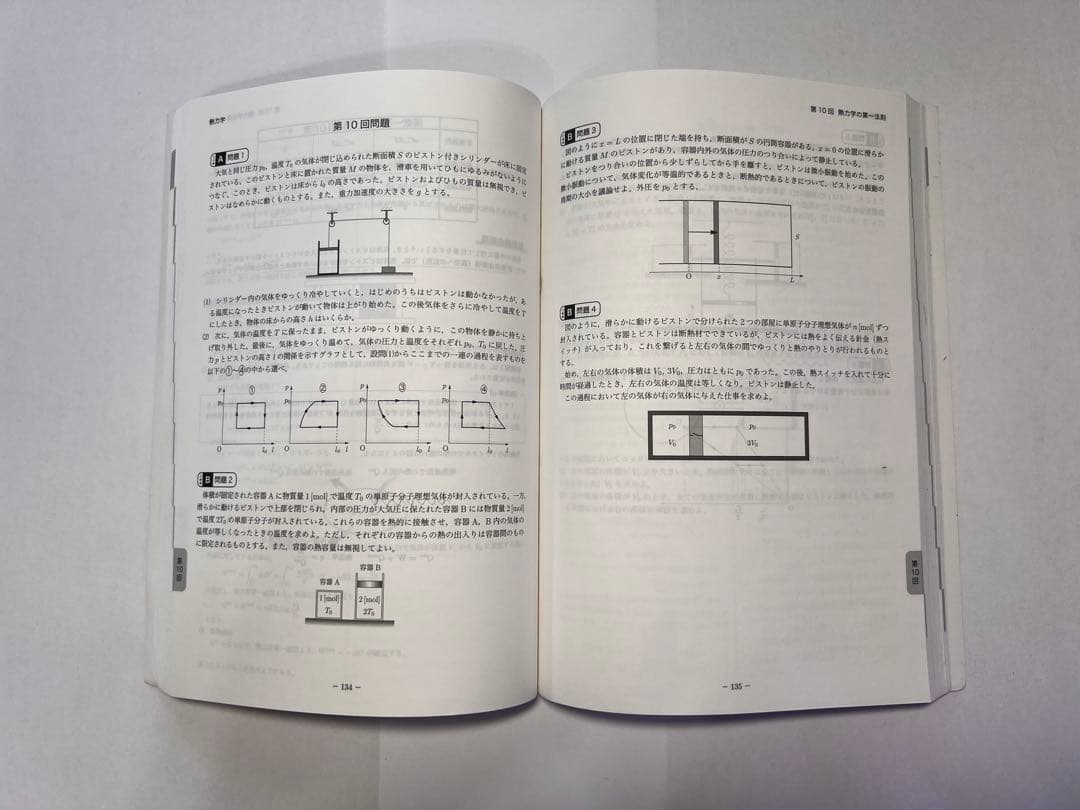 熱力学
第10回問題
A 問題1
大気と同じ圧力 p₀, 温度 T₀ の気体が閉じ込められた断面積 S のピストン付きシリンダーが床に固定
されている。このピストンと床に置かれた質量 M の物体を, 滑車を用いてひもにゆるみがないように
つなぐ。このとき, ピストンは床から l₀ の高さであった。ピストンおよびひもの質量は無視でき, ピ
ストンはなめらかに動くものとする。また, 重力加速度の大きさを g とする。
(1) シリンダー内の気体をゆっくり冷やしていくと, はじめのうちはピストンは動かなかったが, あ
る温度になったときピストンが動いて物体は上がり始めた。この後気体をさらに冷やして温度を T
にしたとき, 物体の床からの高さ h はいくらか。
(2) 次に, 気体の温度を T に保ったまま, ピストンがゆっくり動くように, この物体を静かに持ち上
げ取り外した。最後に, 気体をゆっくり温めて, 気体の圧力と温度をそれぞれ p₀, T₀ に戻した。圧
力 p とピストンの高さ l の関係を示すグラフとして, 設問(1)からここまでの一連の過程を表すものを
以下の①~④の中から選べ。
p ① p₀ O l₀ l
p ② p₀ O l₀ l
p ③ p₀ O l₀ l
p ④ p₀ O l₀ l
B 問題2
体積が固定された容器 A に物質量 1 [mol] で温度 T₀ の単原子分子理想気体が封入されている。一方,
滑らかに動けるピストンで上部を閉じられ, 内部の圧力が大気圧に保たれた容器 B には物質量 2 [mol]
で温度 2T₀ の単原子分子が封入されている。これらの容器を熱的に接触させ, 容器 A, B 内の気体の
温度が等しくなったときの温度を求めよ。ただし, それぞれの容器からの熱の出入りは容器間のもの
に限定されるものとする。また, 容器の熱容量は無視してよい。
容器 A
容器 B
1 [mol]
T₀
2 [mol]
2T₀
第10回
− 134 −
第10回 熱力学の第一法則
B 問題3
図のように x = L の位置に閉じた端を持ち, 断面積が S の円筒容器がある。x = 0 の位置に滑らか
に動ける質量 M のピストンがあり, 容器内外の気体の圧力のつり合いによって静止している。
ピストンをつり合いの位置から少しずらしてから手を離すと, ピストンは微小振動を始めた。この
微小振動について, 気体変化が等温的であるときと, 断熱的であるときについて, ピストンの振動の
周期の大小を議論せよ。外圧を p₀ とする。
S
O
x
L
B 問題4
図のように, 滑らかに動けるピストンで分けられた2つの部屋に単原子分子理想気体が n [mol] ずつ
封入されている。容器とピストンは断熱材でできているが, ピストンには熱をよく伝える針金 (熱ス
イッチ) が入っており, これを繋げると左右の気体の間でゆっくりと熱のやりとりが行われるものと
する。
始め, 左右の気体の体積は V₀, 3V₀, 圧力はともに p₀ であった。この後, 熱スイッチを入れて十分に
時間が経過したとき, 左右の気体の温度は等しくなり, ピストンは静止した。
この過程において左の気体が右の気体に与えた仕事を求めよ。
p₀
V₀
p₀
3V₀
第10回
− 135 −